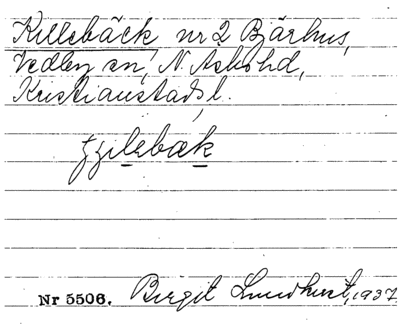 Killebäck nr 2 Bärhus,
Vedby sn, N. Åsbohd,
Kristianstads l.
ʒɩlebæk
Nr 5506. Birgit Lundkvist, 1937